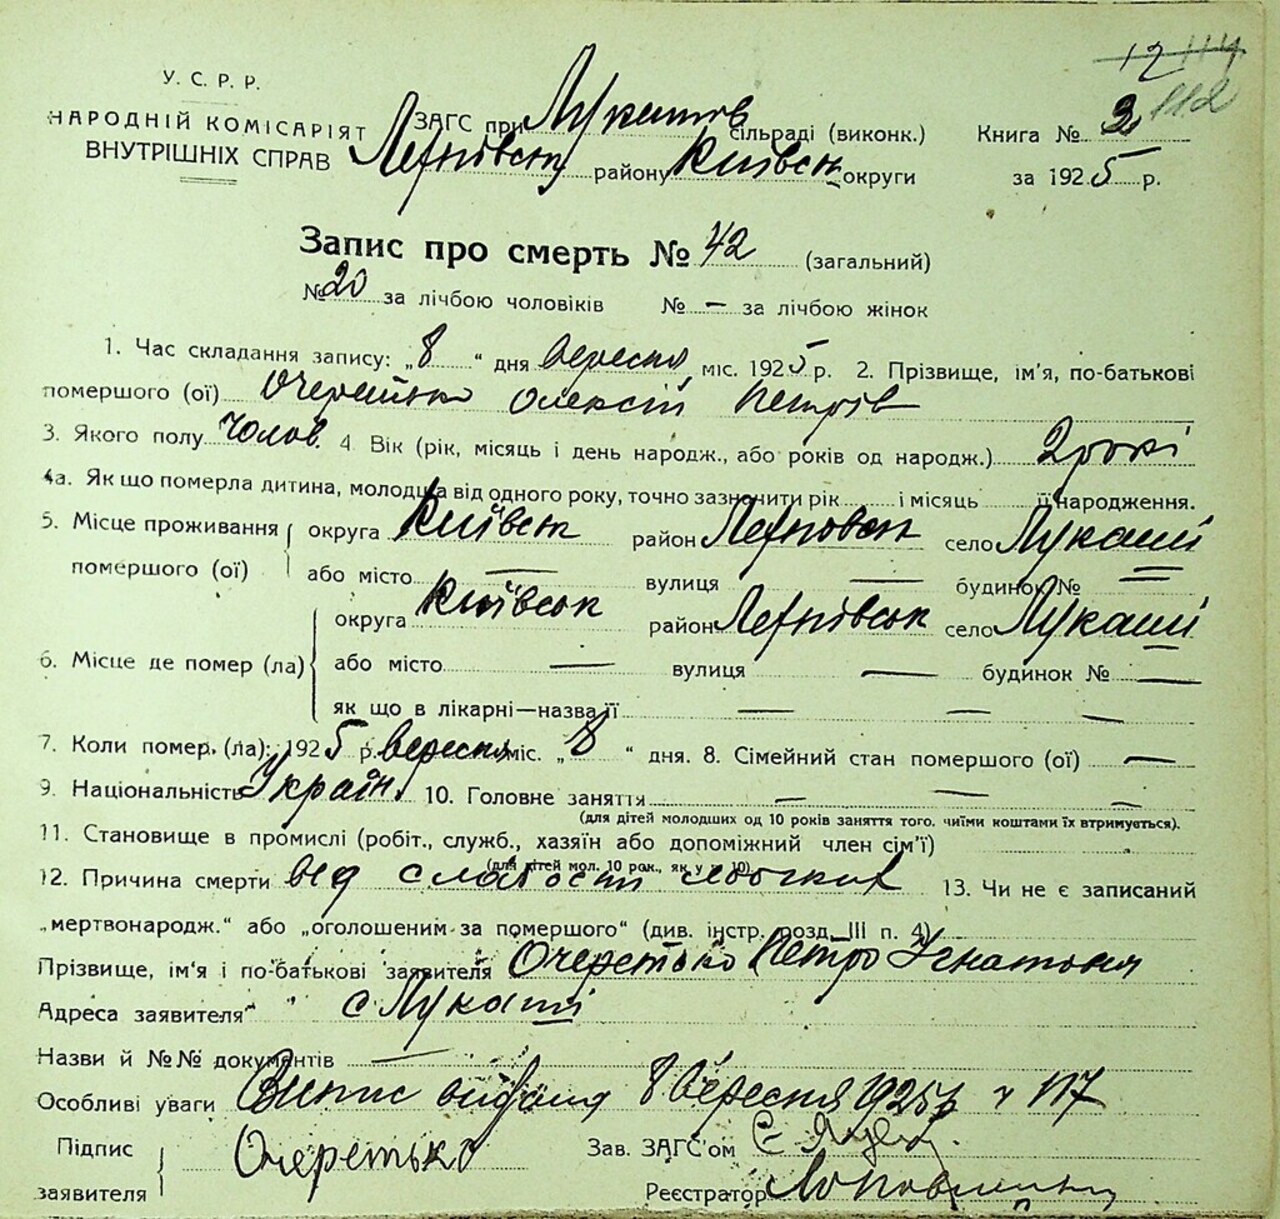 12 114
112
У. С. Р. Р.
НАРОДНІЙ КОМІСАРІЯТ
ВНУТРІШНІХ СПРАВ
ЗАГС при Лукашів сільраді (виконк.)
району Київськ округи
Книга № 2
за 1925 р.
Запис про смерть № 42 (загальний)
№ 20 за лічбою чоловіків № — за лічбою жінок
1. Час складання запису: „8“ дня вересня міс. 1925 р. 2. Прізвище, ім'я, по-батькові
помершого (ої) Очеретько Олексій Петрів
3. Якого полу Чолов. 4 Вік (рік, місяць і день народж., або років од народж.) 2 роки
4а. Як що померла дитина, молодша від одного року, точно зазначити рік і місяць її народження.
5. Місце проживання помершого (ої) округа Київськ район село Лукаші
або місто — вулиця — будинок № —
6. Місце де помер (ла) округа Київськ район село Лукаші
або місто — вулиця — будинок № —
як що в лікарні—назва її — — —
7. Коли помер. (ла): 1925 р. вересня міс. „8“ дня. 8. Сімейний стан помершого (ої) —
9. Національність Україн. 10. Головне заняття — — —
(для дітей молодших од 10 років заняття того, чиїми коштами їх втримується).
11. Становище в промислі (робіт., служб., хазяїн або допоміжний член сім'ї)
(для дітей мол. 10 рок., як у п. 10)
12. Причина смерти від слабости 13. Чи не є записаний
„мертвонародж.“ або „оголошеним за помершого“ (див. інстр. розд. III п. 4)
Прізвище, ім'я і по-батькові заявителя Очеретько Петро Ігнатович
Адреса заявителя с Лукаші
Назви й №№ документів —
Особливі уваги Випис видано 8 вересня 1925 117
Підпис заявителя Очеретько
Зав. ЗАГС'ом
Реєстратор